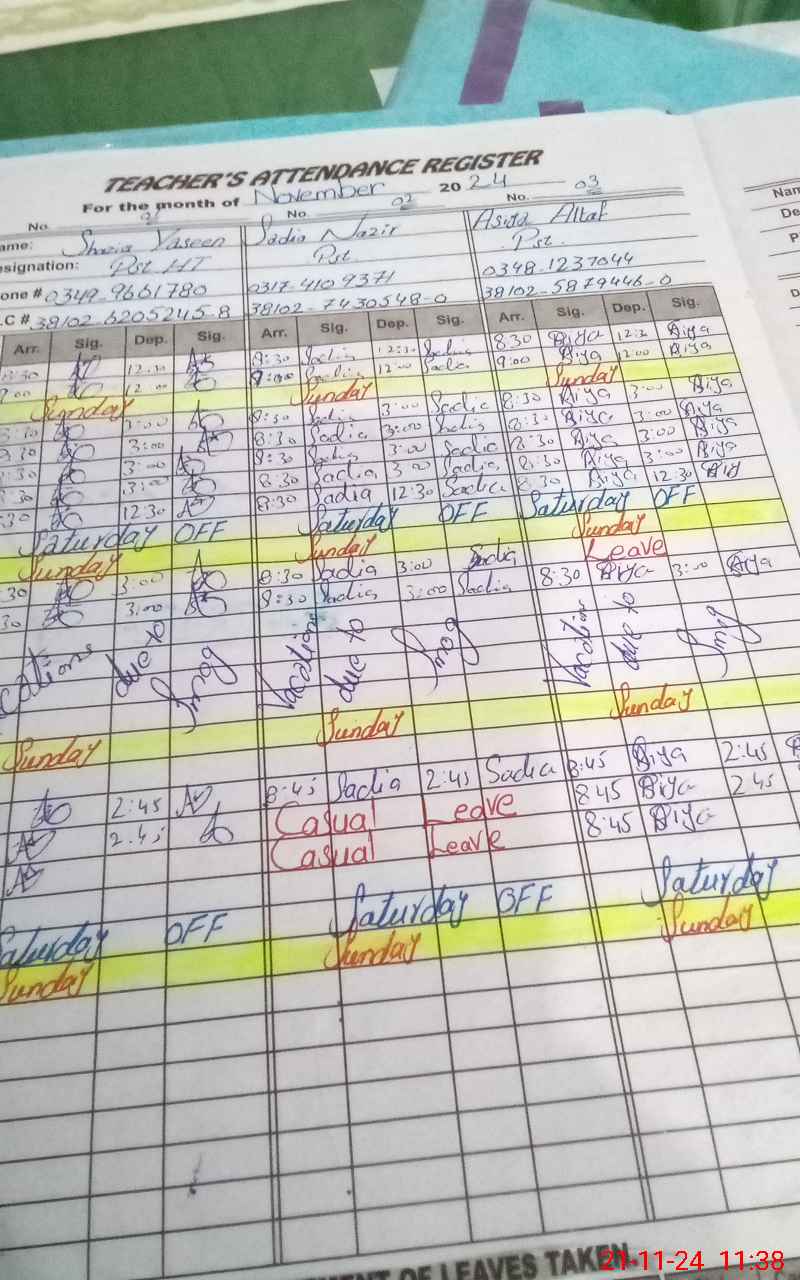 TEACHER'S ATTENDANCE REGISTER
For the month of November 2024
No. 01 No. 02 No. 03
ame: Shazia Yaseen Sadia Nazir Asiya Altaf
esignation: Pst HT Pst Pst
one # 0349-9661780 0317-4109371 0348-1237044
.C # 38102-6205245-8 38102-7430548-0 38102-5879446-0
Arr. Sig. Dep. Sig. Arr. Sig. Dep. Sig. Arr. Sig. Dep. Sig.
8:30 12:30 8:30 Sadia 12:30 Sadia 8:30 Aiya 12:30 Aiya
9:00 12:00 9:00 Sadia 12:00 Sadia 9:00 Aiya 12:00 Aiya
Sunday Sunday Sunday
8:30 3:00 8:30 Sadia 3:00 Sadia 8:30 Aiya 3:00 Aiya
8:30 3:00 8:30 Sadia 3:00 Sadia 8:30 Aiya 3:00 Aiya
:30 3:00 8:30 Sadia 3:00 Sadia 8:30 Aiya 3:00 Aiya
:30 3:00 8:30 Sadia 3:00 Sadia 8:30 Aiya 3:00 Aiya
:30 12:30 8:30 Sadia 12:30 Sadia 8:30 Aiya 12:30 Aiy
Saturday OFF Saturday OFF Saturday OFF
Sunday Sunday Sunday
:30 3:00 8:30 Sadia 3:00 Sadia Leave
30 3:00 8:30 Sadia 3:00 Sadia 8:30 Aiya 3:00 Aiya
cations due to Smog Vacation due to Smog Vacation due to Smg
Sunday Sunday Sunday
2:45 8:45 Sadia 2:45 Sadia 8:45 Aiya 2:45
2:45 Casual Leave 8:45 Aiya 2:45
Casual Leave 8:45 Aiya
Saturday OFF Saturday OFF Saturday
Sunday Sunday Sunday
MENT OF LEAVES TAKEN
Nam
De
P
D
21-11-24 11:38